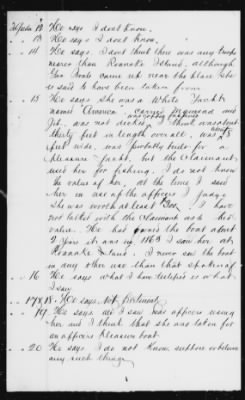 12 He says I dont know.
" 13 He says I dont know.
" 14 He says. I dont think there was any troops
nearer than Roanoke Island, although
Gun Boats came up near the place she
is said to have been taken from
" 15 He says she was a White Yacht
name America
was not
thirty feet in length over all, was
feet wide, was probably built for a
pleasure Yacht, but the Claimant
used her for fishing. I do not know
the value of her, at the time I saw
her in use of the officers I judge
She was worth at least I have
not talked with the Claimant as to her
value. He had owned the boat about
2 Years it was in 1863 I saw her at
Roanoke Island. I never saw the boat
in any other use than that spoken of
" 16 He says what I have testified is what
I saw
" 17 & 18. He says Not
" 19 He says all I saw was officers using
her and I think that she was taken for
an officers pleasure boat
" 20 He says I do not Know
any such thing